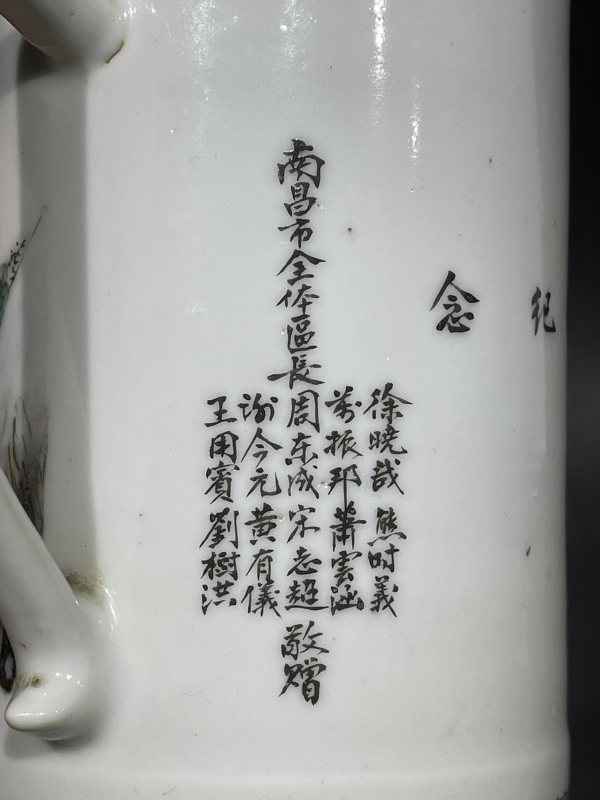 紀念
南昌市全体區長
徐曉哉 熊时義
萬振邦 蕭雲涵
周东成 宋志超
謝今元 黄有儀
王用賓 劉樹洪
敬贈